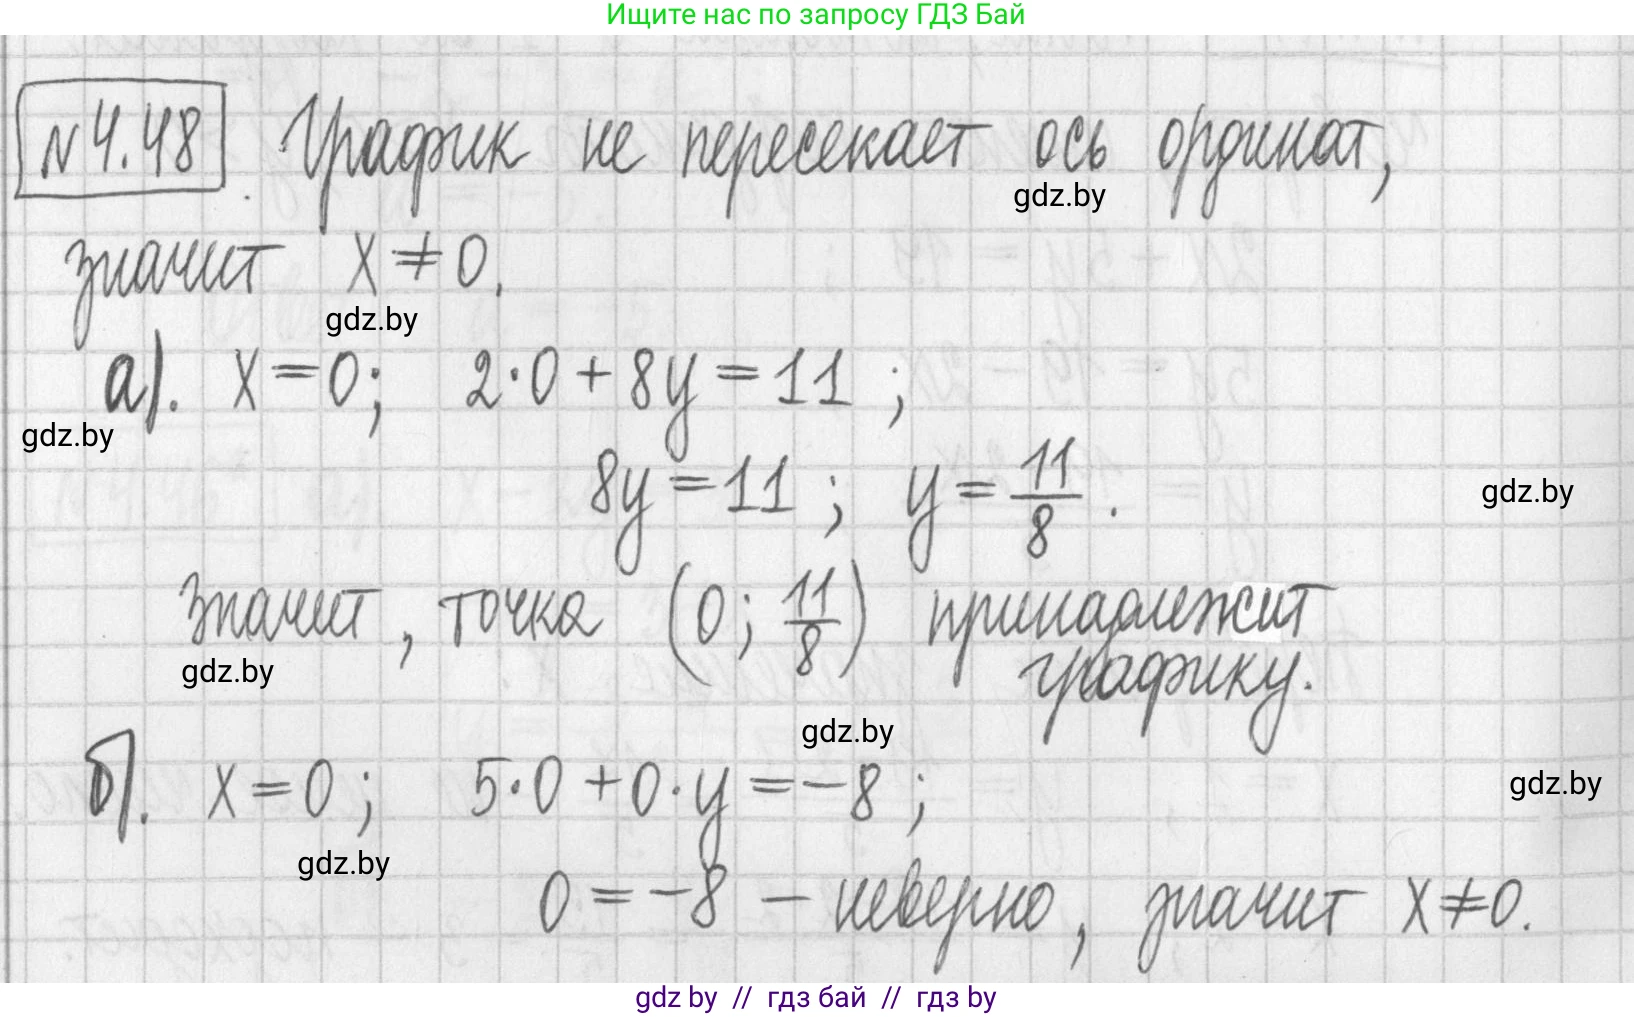 Ищите нас по запросу ГДЗ Бай
№4.48 График не пересекает ось ординат,
gdz.by
значит x ≠ 0.
gdz.by
а). x = 0; 2·0 + 8y = 11 ;
gdz.by
8y = 11 ; y = 11/8 .
gdz.by
Значит, точка (0; 11/8) принадлежит
графику.
gdz.by
gdz.by
б). x = 0; 5·0 + 0·y = -8 ;
gdz.by
gdz.by
0 = -8 – неверно, значит x ≠ 0.
gdz by // гдз бай // гдз by